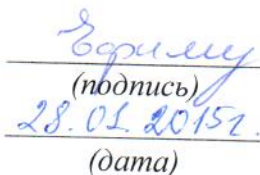 (подпись)
28.01.2015г.
(дата)